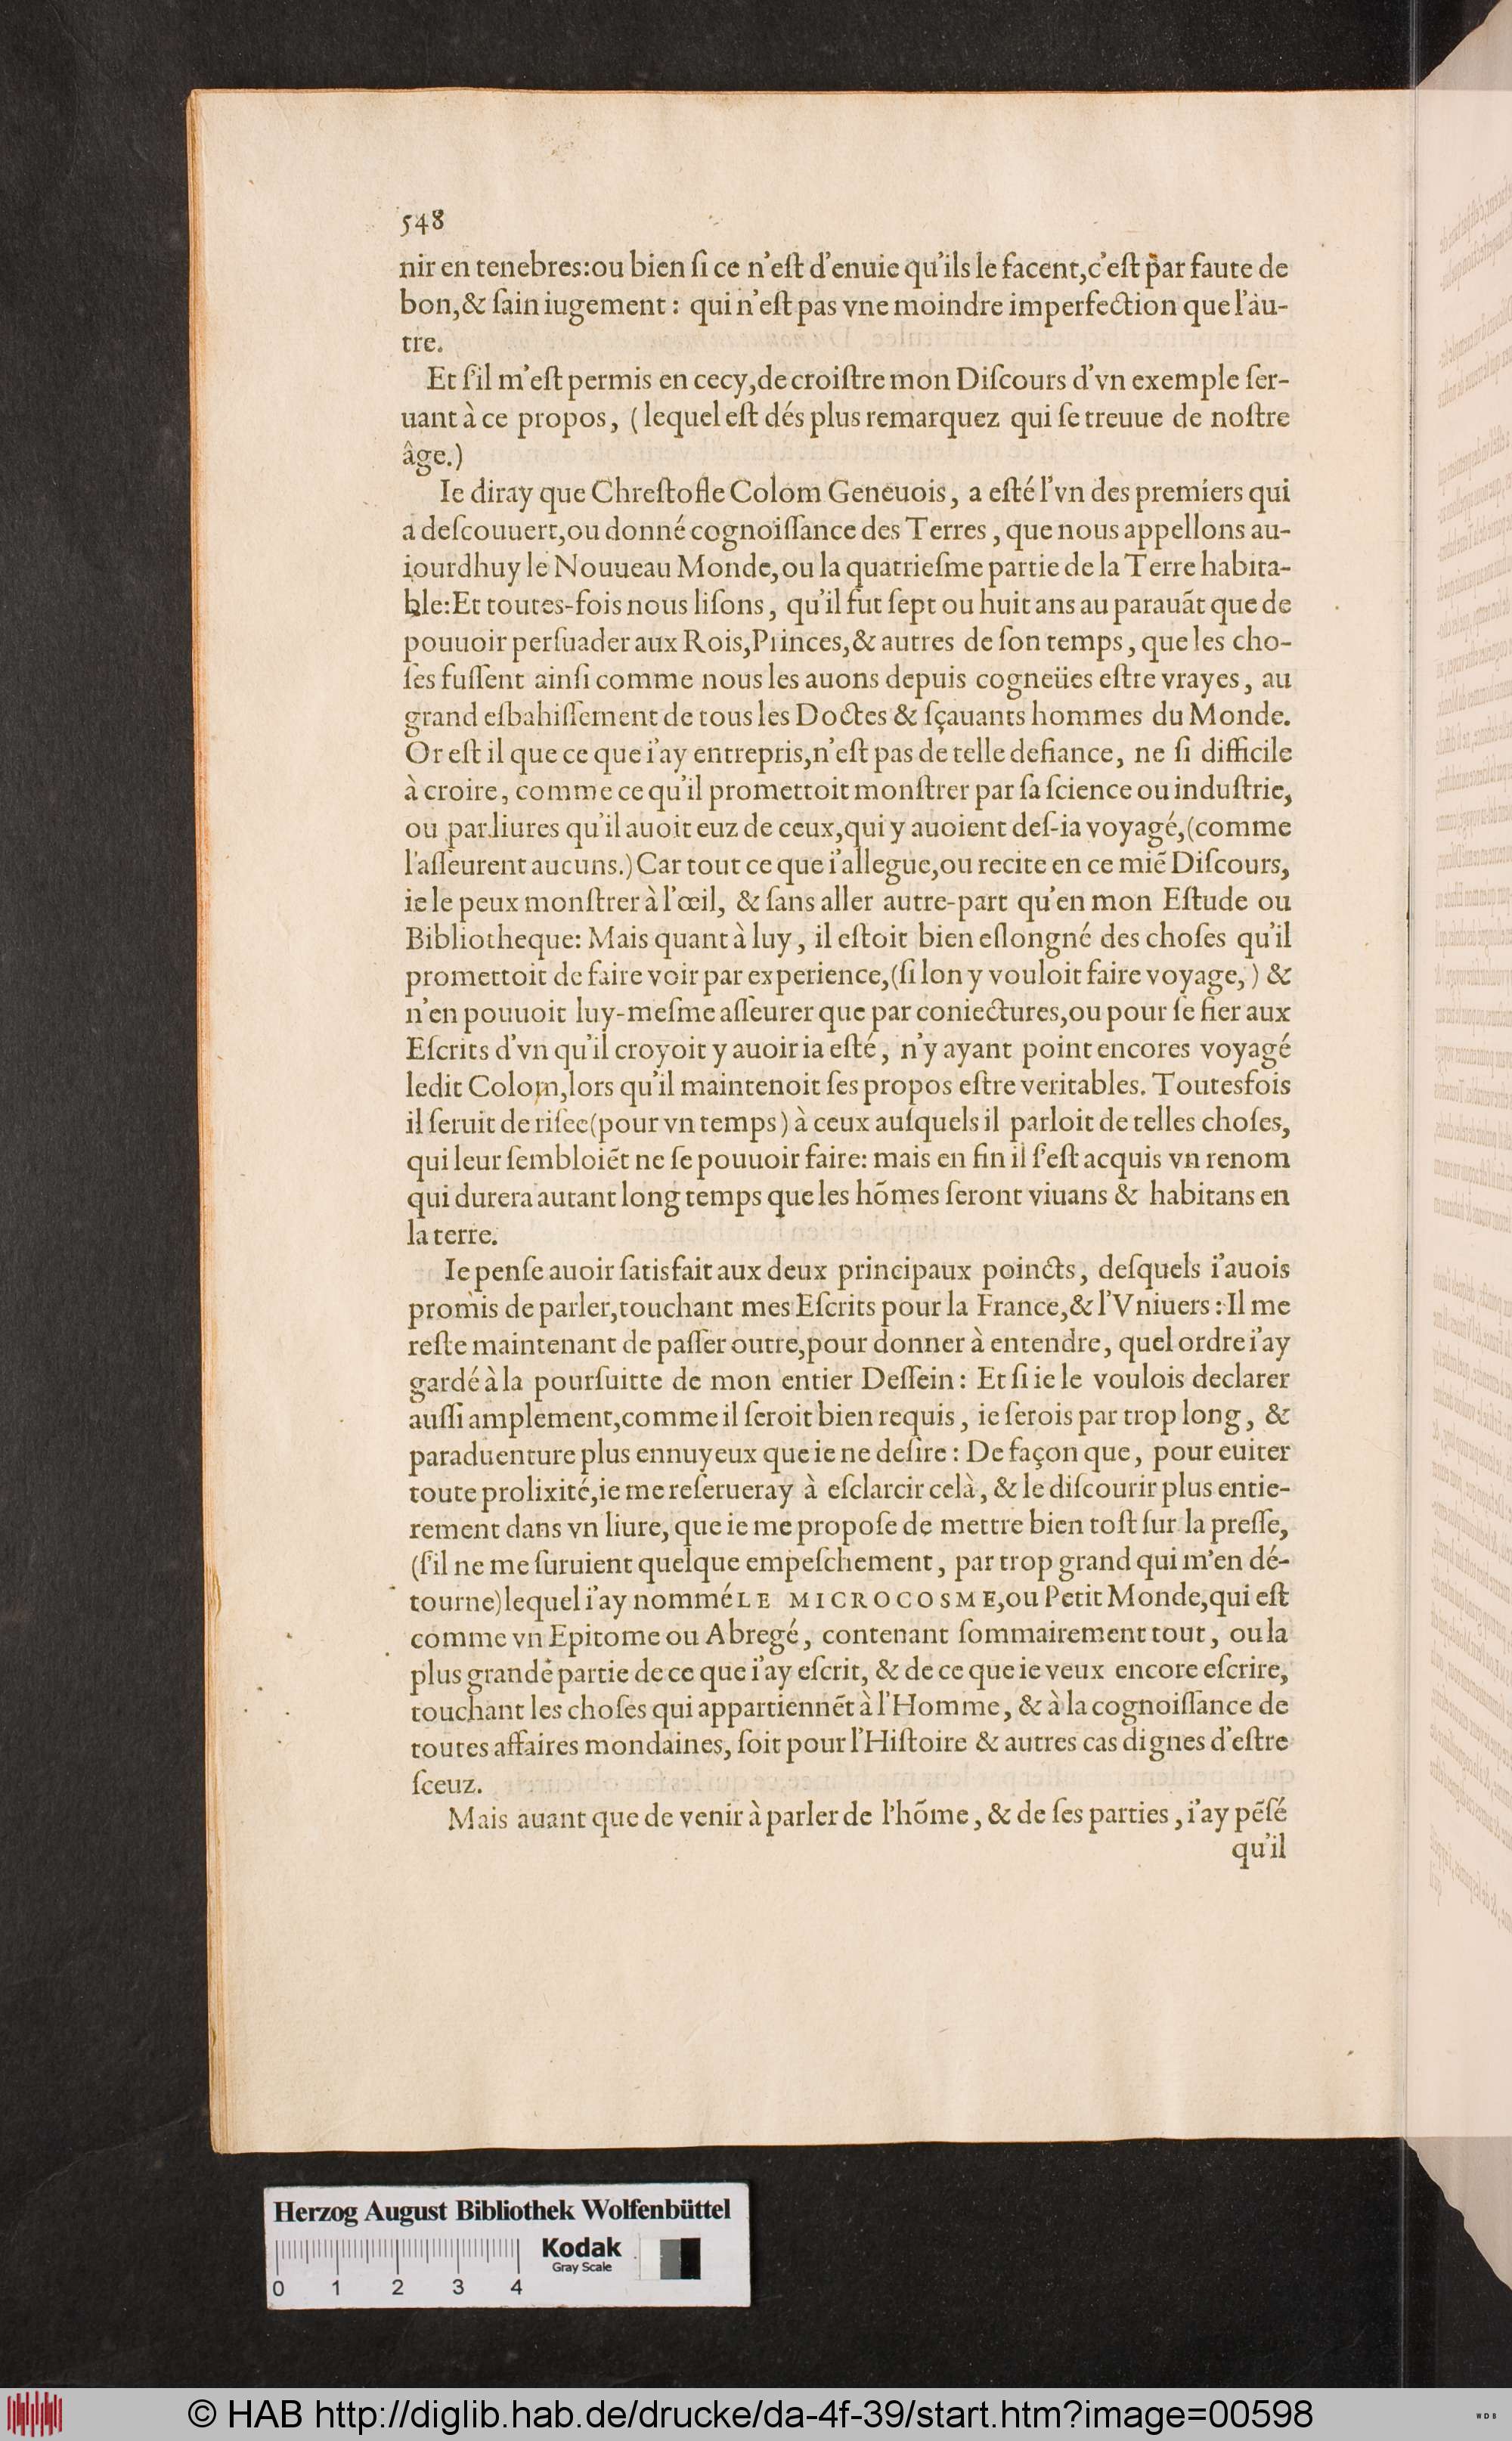 548
nir en tenebres:ou bien ſi ce n’eſt d’enuie qu’ils le facent,c’eſt par faute de
bon,& ſain iugement : qui n’eſt pas vne moindre imperfection que l’au-
tre.
Et ſ’il m’eſt permis en cecy,de croiſtre mon Diſcours d’vn exemple ſer-
uant à ce propos, (lequel eſt dés plus remarquez qui ſe treuue de noſtre
âge.)
Ie diray que Chreſtofle Colom Geneuois, a eſté l’vn des premiers qui
a deſcouuert,ou donné cognoiſſance des Terres , que nous appellons au-
iourdhuy le Nouueau Monde,ou la quatrieſme partie de la Terre habita-
ble:Et toutes-fois nous liſons, qu’il fut ſept ou huit ans au parauãt que de
pouuoir perſuader aux Rois,Princes,& autres de ſon temps, que les cho-
ſes fuſſent ainſi comme nous les auons depuis cogneües eſtre vrayes, au
grand eſbahiſſement de tous les Doctes & ſçauants hommes du Monde.
Or eſt il que ce que i’ay entrepris,n’eſt pas de telle defiance, ne ſi difficile
à croire, comme ce qu’il promettoit monſtrer par ſa ſcience ou induſtrie,
ou par liures qu’il auoit euz de ceux,qui y auoient deſ-ia voyagé,(comme
l’aſſeurent aucuns.) Car tout ce que i’allegue,ou recite en ce miẽ Diſcours,
ie le peux monſtrer à l’œil, & ſans aller autre-part qu’en mon Eſtude ou
Bibliotheque: Mais quant à luy, il eſtoit bien eſlongné des choſes qu’il
promettoit de faire voir par experience,(ſi lon y vouloit faire voyage, ) &
n’en pouuoit luy-meſme aſſeurer que par coniectures,ou pour ſe fier aux
Eſcrits d’vn qu’il croyoit y auoir ia eſté, n’y ayant point encores voyagé
ledit Colom,lors qu’il maintenoit ſes propos eſtre veritables. Toutesfois
il ſeruit de riſee(pour vn temps) à ceux auſquels il parloit de telles choſes,
qui leur ſembloiẽt ne ſe pouuoir faire: mais en fin il ſ’eſt acquis vn renom
qui durera autant long temps que les hõmes ſeront viuans & habitans en
la terre.
Ie penſe auoir ſatisfait aux deux principaux poincts, deſquels i’auois
promis de parler,touchant mes Eſcrits pour la France,& l’Vniuers : Il me
reſte maintenant de paſſer outre,pour donner à entendre, quel ordre i’ay
gardé à la pourſuitte de mon entier Deſſein : Et ſi ie le voulois declarer
auſſi amplement,comme il ſeroit bien requis, ie ſerois par trop long, &
paraduenture plus ennuyeux que ie ne deſire : De façon que, pour euiter
toute prolixité,ie me reſerueray à eſclarcir celà, & le diſcourir plus entie-
rement dans vn liure, que ie me propoſe de mettre bien toſt ſur la preſſe,
(ſ’il ne me ſuruient quelque empeſchement, par trop grand qui m’en dé-
tourne)lequel i’ay nommé LE MICROCOSME,ou Petit Monde,qui eſt
comme vn Epitome ou Abregé, contenant ſommairement tout, ou la
plus grande partie de ce que i’ay eſcrit, & de ce que ie veux encore eſcrire,
touchant les choſes qui appartiennẽt à l’Homme, & à la cognoiſſance de
toutes affaires mondaines, ſoit pour l’Hiſtoire & autres cas dignes d’eſtre
ſceuz.
Mais auant que de venir à parler de l’hõme, & de ſes parties, i’ay pẽſé
qu’il
Herzog August Bibliothek Wolfenbüttel
Kodak
Gray Scale
0 1 2 3 4
© HAB http://diglib.hab.de/drucke/da-4f-39/start.htm?image=00598
WDB